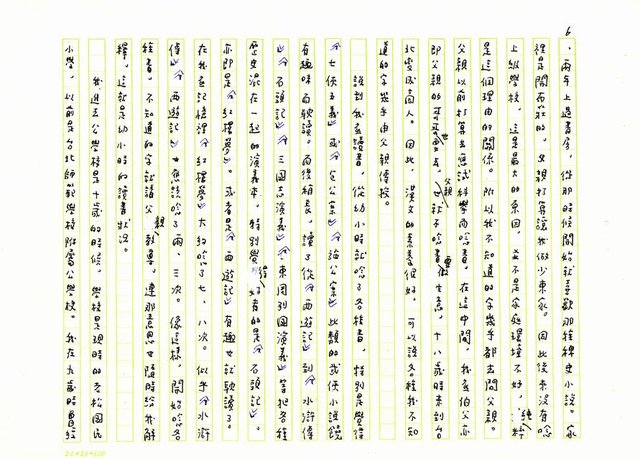 6
、兩年上過書房，從那時候開始就喜歡那種稗史小說。家
裡是開商社的，父親打算讓我做少東家。因此後來沒有唸
上級學校，這是最大的原因，並不是家庭環境不好，純粹
是這個理由的關係。所以我不知道的字幾乎都去問父親。
父親以前打算去應試科學而唸書。在這中間，我底伯父亦
即父親的哥哥世去，父親也就不唸書而要做生意，十八歲時來到台
北變成商人。因此，漢文的素養很好，可以說各種我不知
道的字幾乎由父親傳授。
說到我底讀書，從幼小時就唸了各種書，特別是覺得
「七俠五義」或「包公案」「施公案」此類的武俠小說饒
有趣味而耽讀。而後稍長，讀了從「西遊記」到「水滸傳
」「石頭記」「三國志演義」「東周列國演義」等把各種
歷史混在一起的演義來。特別覺得好看的是「石頭記」。
亦即是「紅樓夢」。或者是「西遊記」有趣也就耽讀了。
在我底記憶裡「紅樓夢」大約唸了七、八次。似乎「水滸
傳」「西遊記」也應該唸了兩、三次。像這樣，開始唸各
種書。不知道的字就請父親教導。連那意思也隨時給我解
釋。這就是幼小時的讀書狀況。
我進去公學校是十歲的時候。學校是現時的老松國民
小學，以前是台北師範學校附屬公學校。我在九歲時曾經